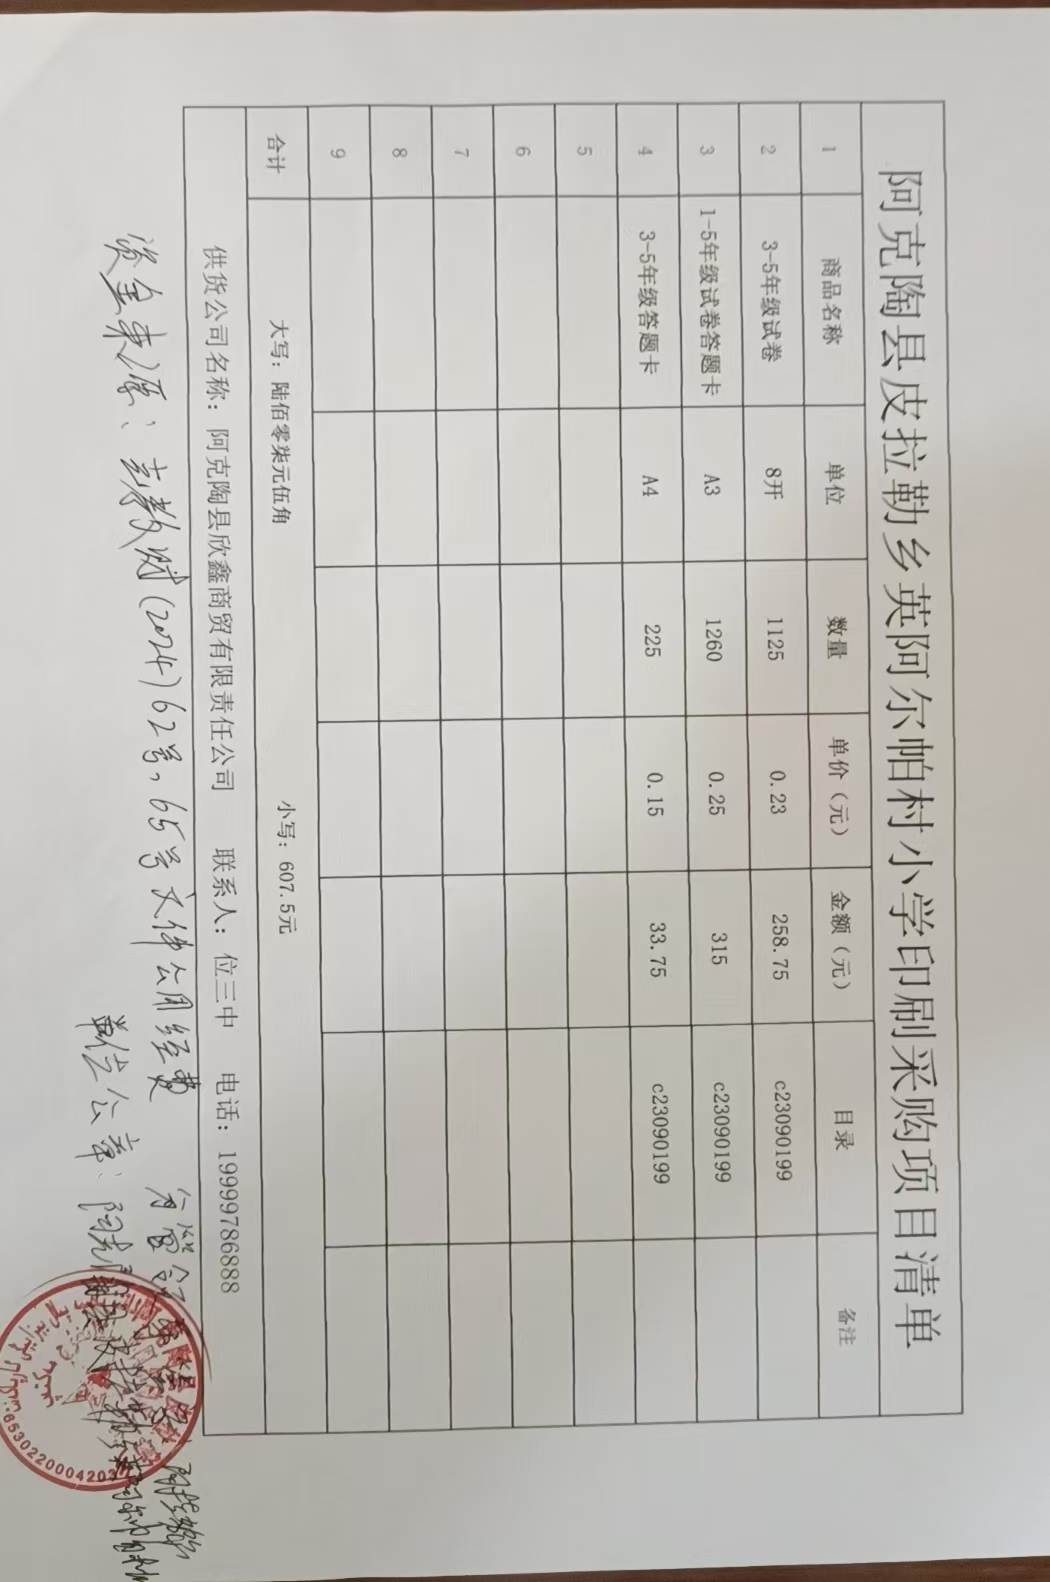 阿克陶县皮拉勒乡英阿尔帕村小学印刷采购项目清单
1 商品名称 单位 数量 单价（元） 金额（元） 目录 备注
2 3-5年级试卷 8开 1125 0.23 258.75 c23090199
3 1-5年级试卷答题卡 A3 1260 0.25 315 c23090199
4 3-5年级答题卡 A4 225 0.15 33.75 c23090199
5
6
7
8
9
合计 大写：陆佰零柒元伍角 小写：607.5元
供货公司名称：阿克陶县欣鑫商贸有限责任公司 联系人：位三中 电话：19999786888
资金来源：克教财(2024)62号，65号文件公用经费
单位公章：阿克陶县皮拉勒乡英阿尔帕村